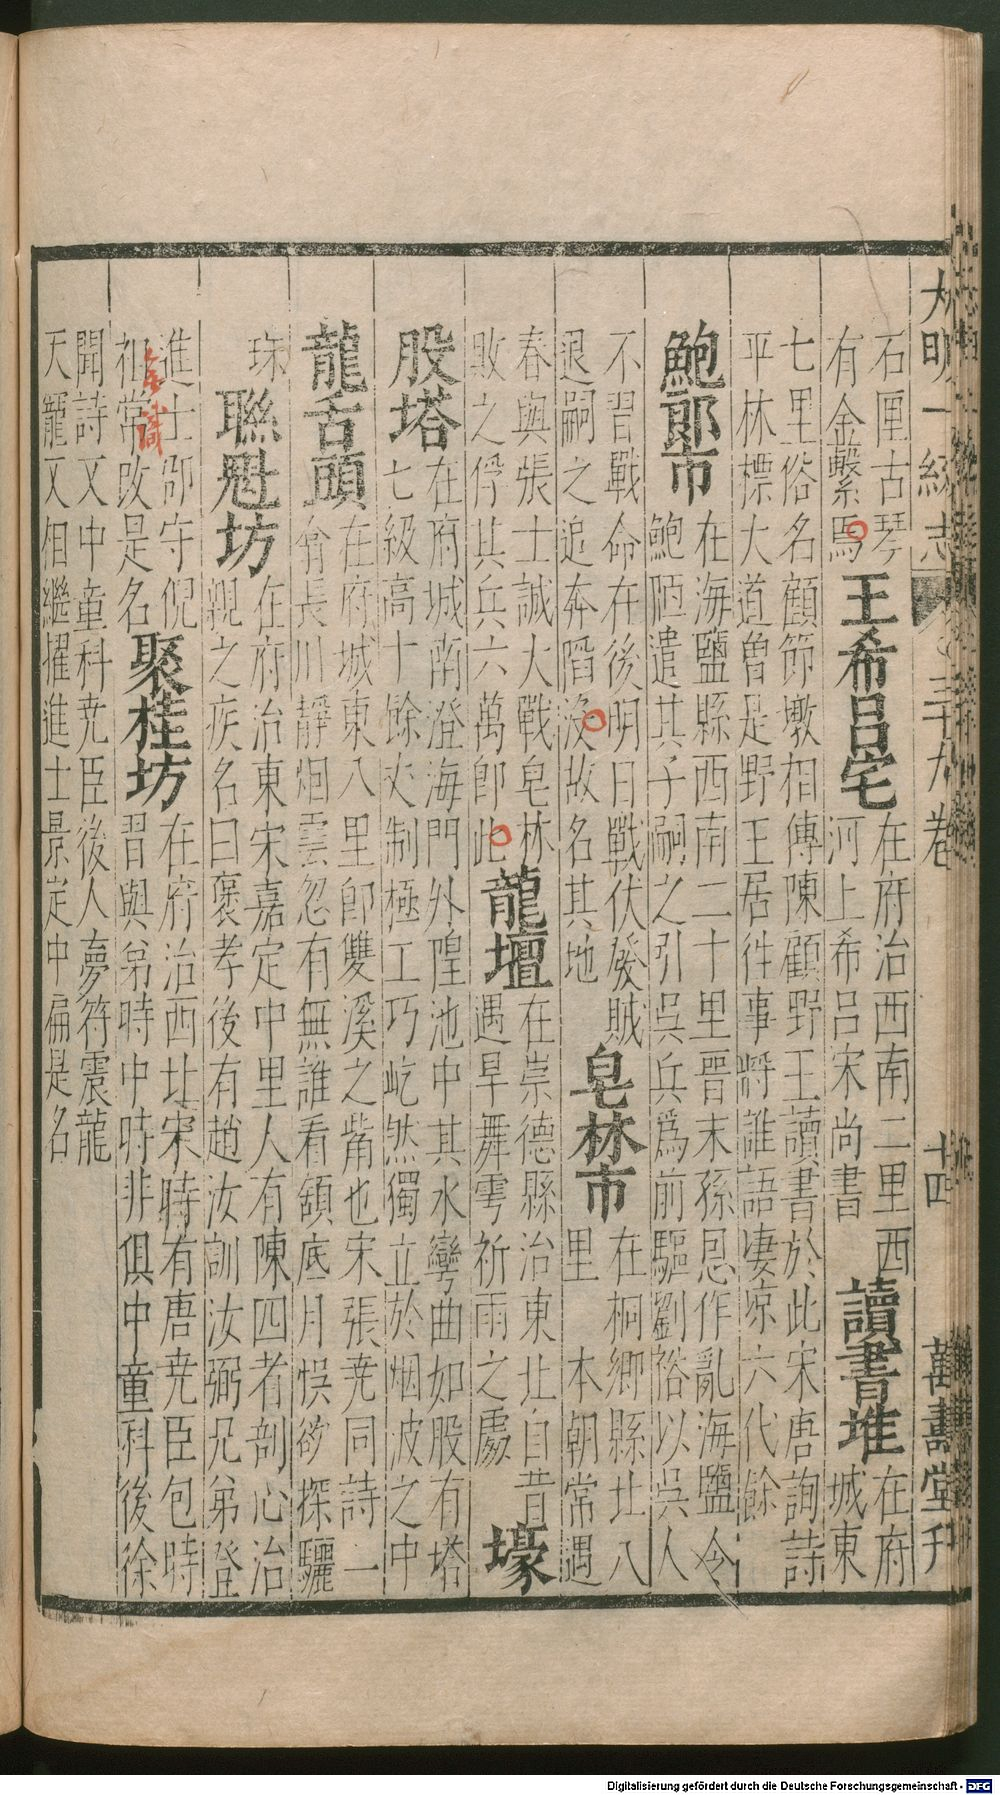 大明一統志 三十九卷 十四 萬壽堂刊
石匣古琴
有金繫馬
王希呂宅
在府治西南二里西
河上希呂宋尚書
讀書堆
在府
城東
七里俗名顧節墩相傳陳顧野王讀書於此宋唐詢詩
平林標大道曾是野王居往事將誰語凄凉六代餘
鮑郎市
在海鹽縣西南二十里晉末孫恩作亂海鹽令
鮑陋遣其子嗣之引吳兵爲前驅劉裕以吳人
不習戰命在後明日戰伏發賊
退嗣之追奔陷沒故名其地
皂林市
在桐鄉縣北八
里 本朝常遇
春與張士誠大戰皂林
敗之俘其兵六萬卽此
龍壇
在崇德縣治東北自昔
遇旱舞雩祈雨之處
壕
股塔
在府城南澄海門外隍池中其水彎曲如股有塔
七級高十餘丈制極工巧屹然獨立於烟波之中
龍舌頭
在府城東八里卽雙溪之觜也宋張堯同詩一
龠長川靜烟雲忽有無誰看頷底月悞欲探驪
珠
聯魁坊
在府治東宋嘉定中里人有陳四者剖心治
親之疾名曰褒孝後有趙汝訓汝弼兄弟登
進士郡守倪
祖常改是名
聚桂坊
在府治西北宋時有唐堯臣包時
習與弟時中時非俱中童科後徐
聞詩又中童科堯臣後人夢符震龍
天寵又相繼擢進士景定中扁是名
Digitalisierung gefördert durch die Deutsche Forschungsgemeinschaft - DFG